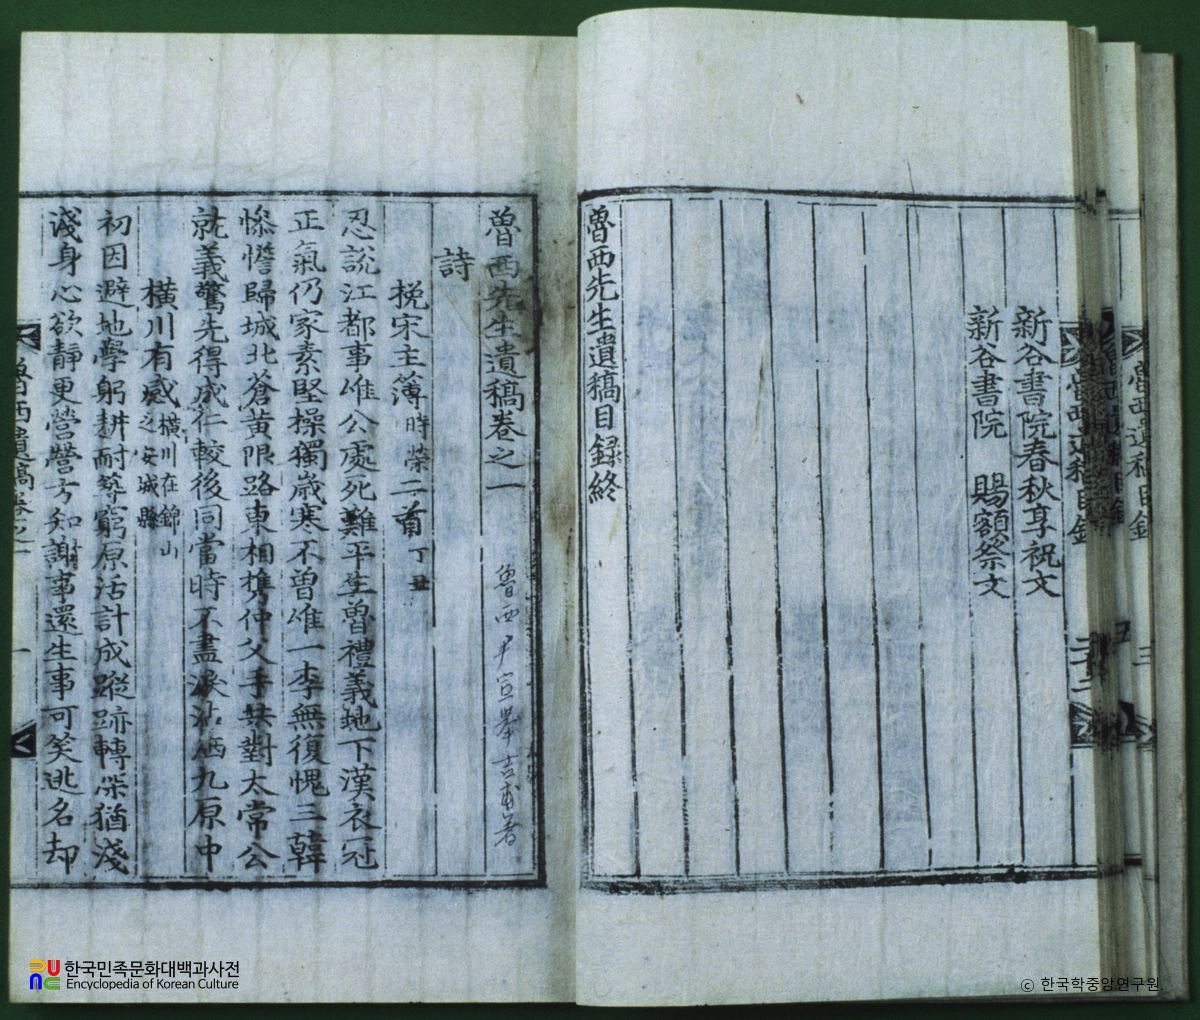 新谷書院春秋享祝文
新谷書院 賜額祭文
魯西先生遺稿目録終
魯西先生遺稿卷之一
魯西尹宣擧吉甫著
詩
挽宋主簿時榮二首丁丑
忍說江都事唯公處死難平生魯禮義地下漢衣冠
正氣仍家素堅操獨歲寒不曾唯一李無復愧三韓
慘憺歸城北蒼黃限路東相携仲父手共對太常公
就義驚先得成仁較後同當時不盡淚沾洒九原中
橫川有感橫川在錦山之安城縣
初因避地學躬耕耐等窮原活計成蹤跡轉深猶淺
淺身心欲靜更營營方知謝事還生事可笑逃名却
魯西遺稿卷之一
一
한국민족문화대백과사전
Encyclopedia of Korean Culture
ⓒ 한국학중앙연구원.